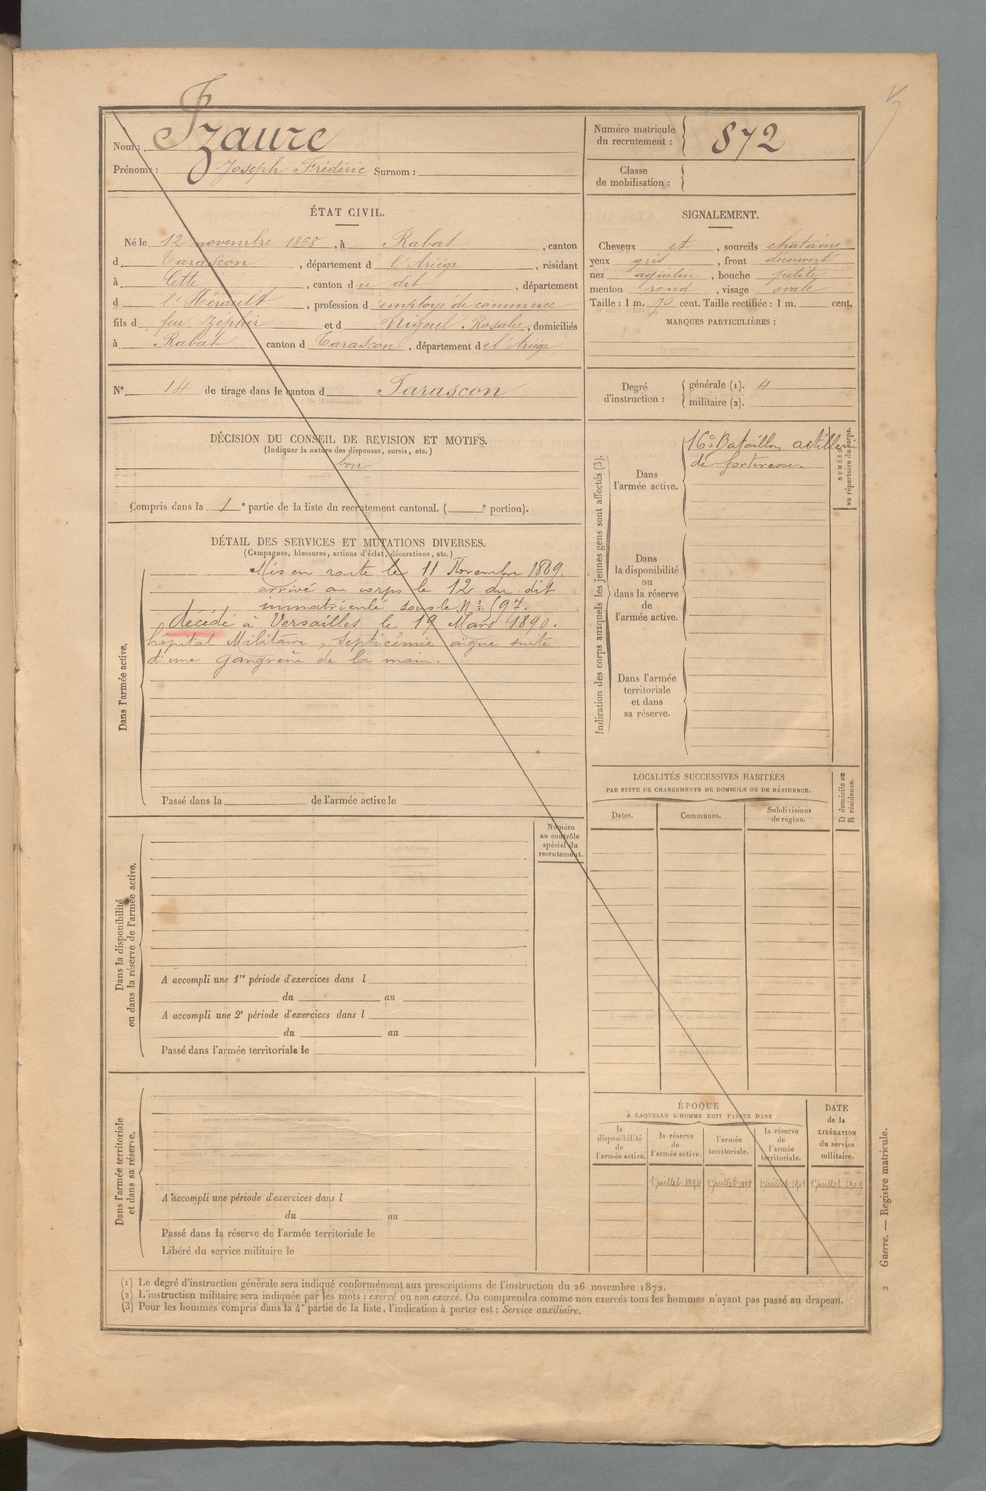 Nom : Izaure
Prénoms : Joseph Frédéric Surnom :
Numéro matricule du recrutement : 872
Classe de mobilisation :
ÉTAT CIVIL.
Né le 12 novembre 1868, à Rabat, canton
d Tarascon, département d l'Ariège, résidant
à Cette, canton d u dit, département
d l'Hérault, profession d employé de commerce
fils d feu Zéphir et d Rigoul, Rosalie, domiciliés
à Rabat canton d Tarascon, département d el'Ariège
N° 14 de tirage dans le canton d Tarascon
SIGNALEMENT.
Cheveux et, sourcils chatains
yeux gris, front découvert
nez aquilin, bouche petite
menton rond, visage ovale
Taille : 1 m. 70 cent. Taille rectifiée : 1 m. cent.
MARQUES PARTICULIÈRES :
Degré d'instruction : générale (1). 4
militaire (2).
DÉCISION DU CONSEIL DE REVISION ET MOTIFS.
(Indiquer la nature des dispenses, sursis, etc.)
bon
Compris dans la 1e partie de la liste du recrutement cantonal. ( e portion).
DÉTAIL DES SERVICES ET MUTATIONS DIVERSES.
(Campagnes, blessures, actions d'éclat, décorations, etc.)
Dans l'armée active.
Mis en route le 11 Novembre 1889.
arrivé au corps le 12 du dit
immatriculé sous le N°
décédé à Versailles le 19 Mars 1890.
hôpital Militaire, Septicémie aigue suite
d'une gangrène de la main.
Passé dans la de l'armée active le
Indication des corps auxquels les jeunes gens sont affectés (3).
Dans l'armée active.
16e Bataillon artillerie
de forteresse.
NUMÉRO au répertoire du corps.
Dans la disponibilité ou dans la réserve de l'armée active.
Dans l'armée territoriale et dans sa réserve.
LOCALITÉS SUCCESSIVES HABITÉES
PAR SUITE DE CHANGEMENTS DE DOMICILE OU DE RÉSIDENCE.
Dates. Communes. Subdivisions de région.
D domicile ou R résidence.
Numéro au contrôle spécial du recrutement.
Dans la disponibilité ou dans la réserve de l'armée active.
A accompli une 1re période d'exercices dans l
du au
A accompli une 2e période d'exercices dans l
du au
Passé dans l'armée territoriale le
Dans l'armée territoriale et dans sa réserve.
A accompli une période d'exercices dans l
du au
Passé dans la réserve de l'armée territoriale le
Libéré du service militaire le
ÉPOQUE
À LAQUELLE L'HOMME DOIT PASSER DANS
la disponibilité de l'armée active.
la réserve de l'armée active.
l'armée territoriale.
la réserve de l'armée territoriale.
DATE de la LIBÉRATION du service militaire.
1 juillet 1 juillet 1 juillet 1 juillet
(1) Le degré d'instruction générale sera indiqué conformément aux prescriptions de l'instruction du 26 novembre 1872.
(2) L'instruction militaire sera indiquée par les mots : exercé ou non exercé. On comprendra comme non exercés tous les hommes n'ayant pas passé au drapeau.
(3) Pour les hommes compris dans la 4e partie de la liste, l'indication à porter est : Service auxiliaire.
2 Guerre. — Registre matricule.